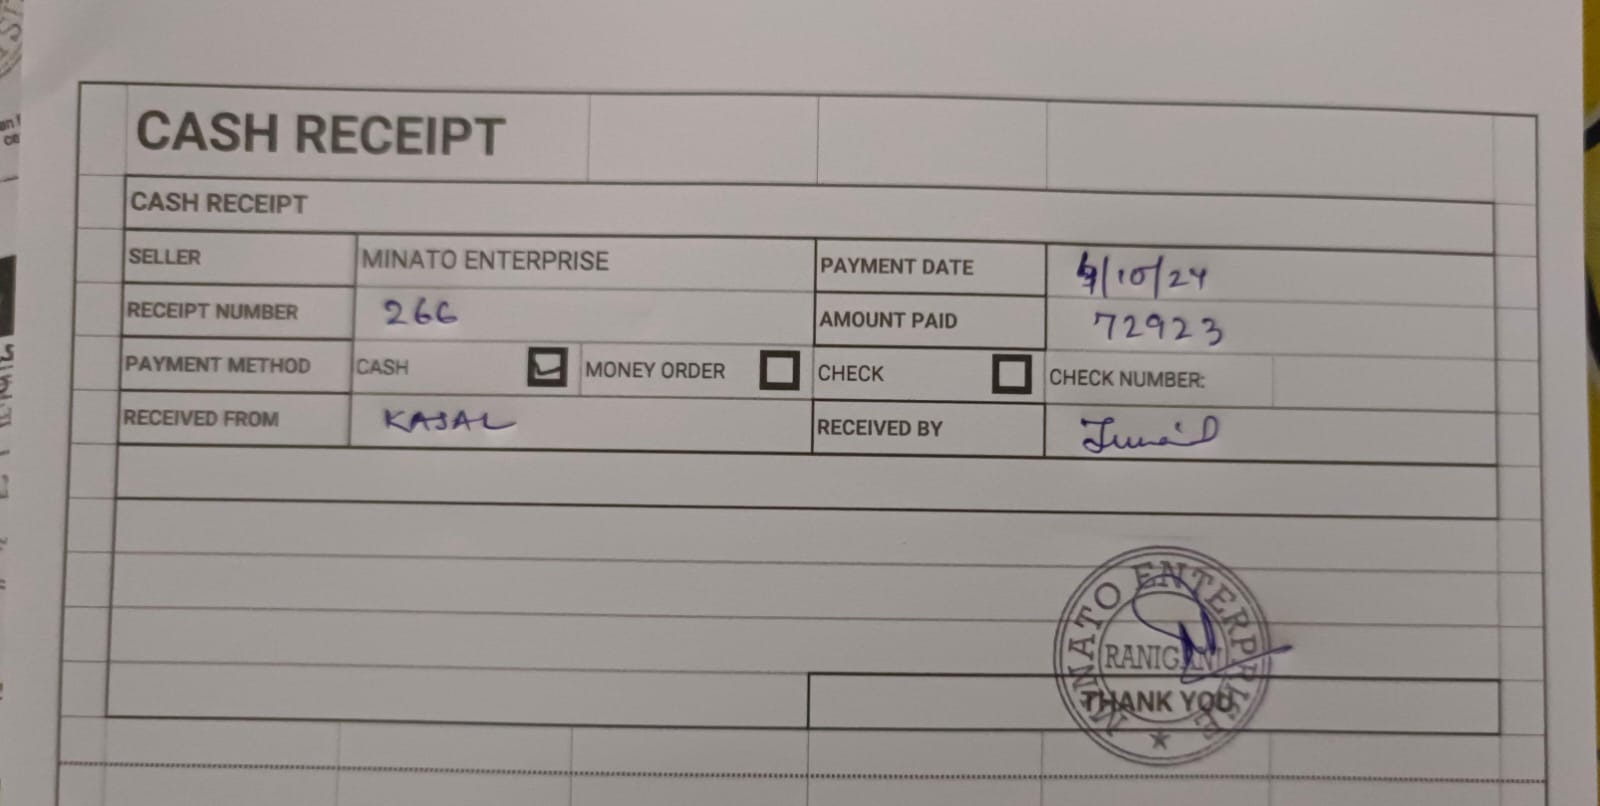 CASH RECEIPT
CASH RECEIPT
SELLER MINATO ENTERPRISE PAYMENT DATE /10/24
RECEIPT NUMBER 266 AMOUNT PAID 72923
PAYMENT METHOD CASH MONEY ORDER CHECK CHECK NUMBER:
RECEIVED FROM KAJAL RECEIVED BY Junaid
MINATO ENTERPRISE
RANIGANJ
THANK YOU